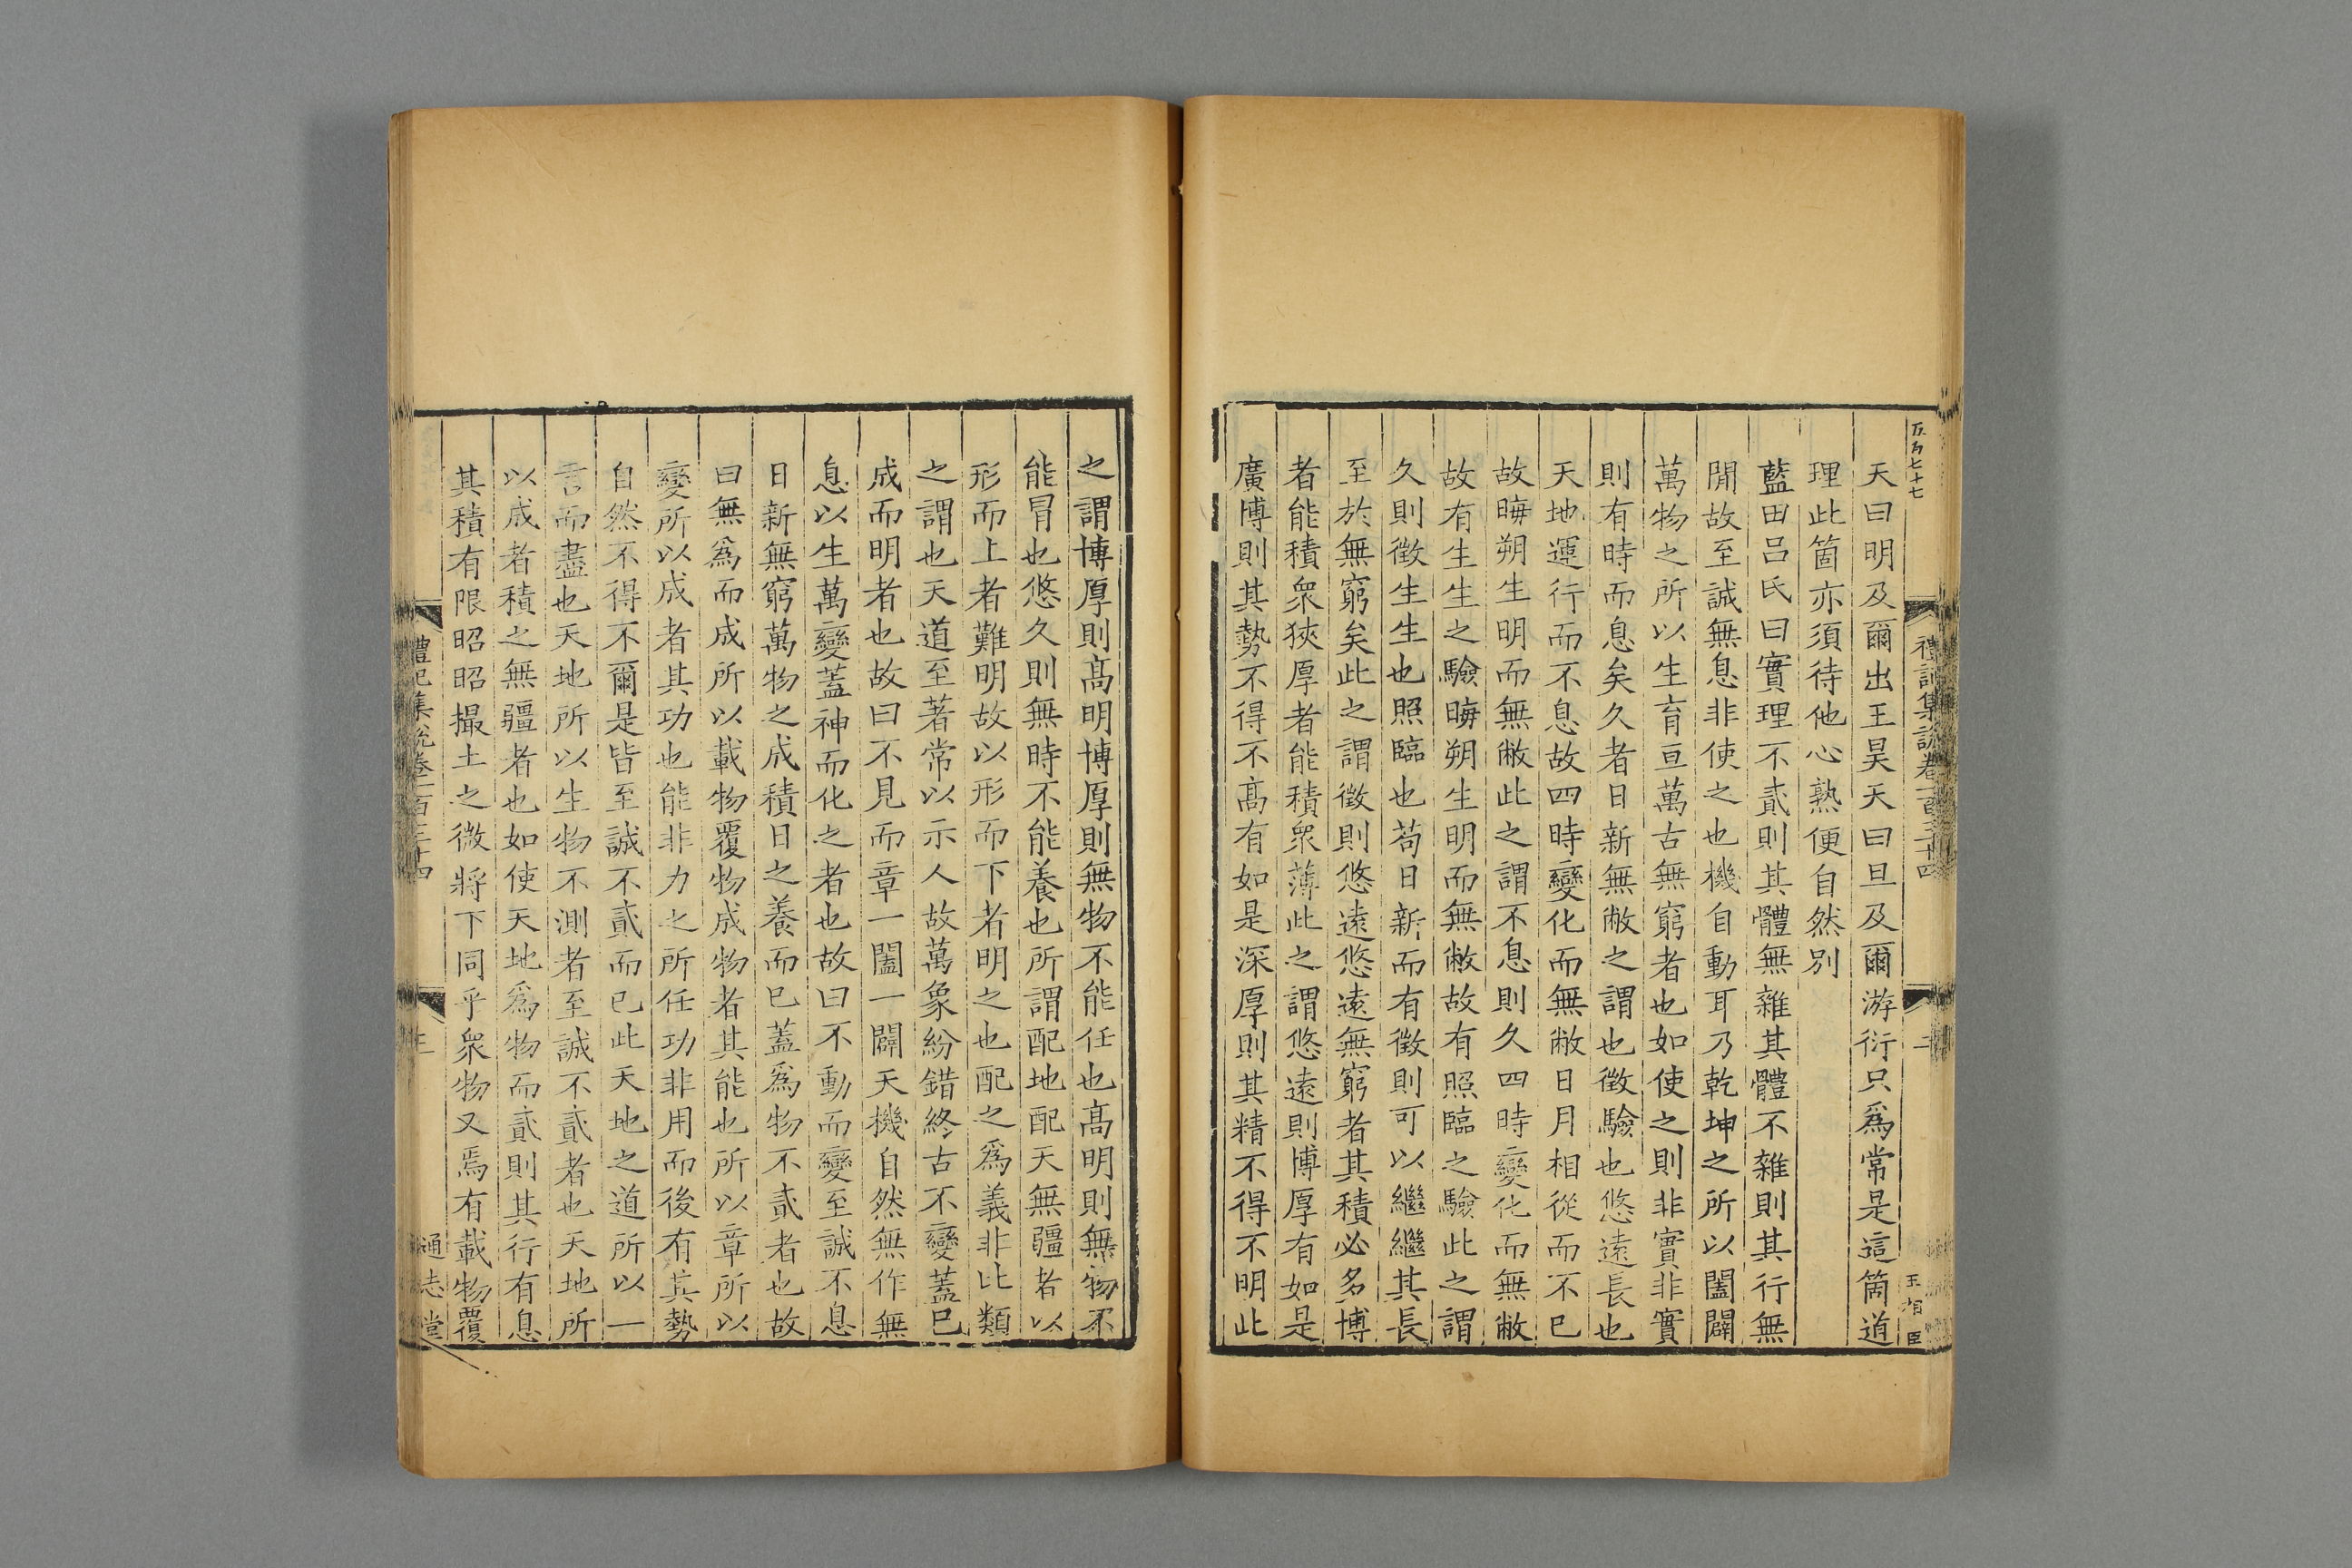 天曰明及爾出王昊天曰旦及爾游衍只爲常是這箇道
理此箇亦須待他心熟便自然別
藍田呂氏曰實理不貳則其體無雜其體不雜則其行無
閒故至誠無息非使之也機自動耳乃乾坤之所以闔闢
萬物之所以生育亘萬古無窮者也如使之則非實非實
則有時而息矣久者日新無敝之謂也徵驗也悠遠長也
天地運行而不息故四時變化而無敝日月相從而不已
故晦朔生明而無敝此之謂不息則久四時變化而無敝
故有生生之驗晦朔生明而無敝故有照臨之驗此之謂
久則徵生生也照臨也苟日新而有徵則可以繼繼其長
至於無窮矣此之謂徵則悠遠悠遠無窮者其積必多博
者能積衆狹厚者能積衆薄此之謂悠遠則博厚有如是
廣博則其勢不得不髙有如是深厚則其精不得不明此
禮記集說卷一百三十四
二
王相臣
之謂博厚則髙明博厚則無物不能任也髙明則無物不
能冒也悠久則無時不能養也所謂配地配天無疆者以
形而上者難明故以形而下者明之也配之爲義非比類
之謂也天道至著常以示人故萬象紛錯終古不變蓋已
成而明者也故曰不見而章一闔一闢天機自然無作無
息以生萬變蓋神而化之者也故曰不動而變至誠不息
日新無窮萬物之成積日之養而已蓋爲物不貳者也故
曰無爲而成所以載物覆物成物者其能也所以章所以
變所以成者其功也能非力之所任功非用而後有其勢
自然不得不爾是皆至誠不貳而已此天地之道所以一
言而盡也天地所以生物不測者至誠不貳者也天地所
以成者積之無疆者也如使天地爲物而貳則其行有息
其積有限昭昭撮土之微將下同乎衆物又焉有載物覆
禮記集說卷一百三十四
三
通志堂